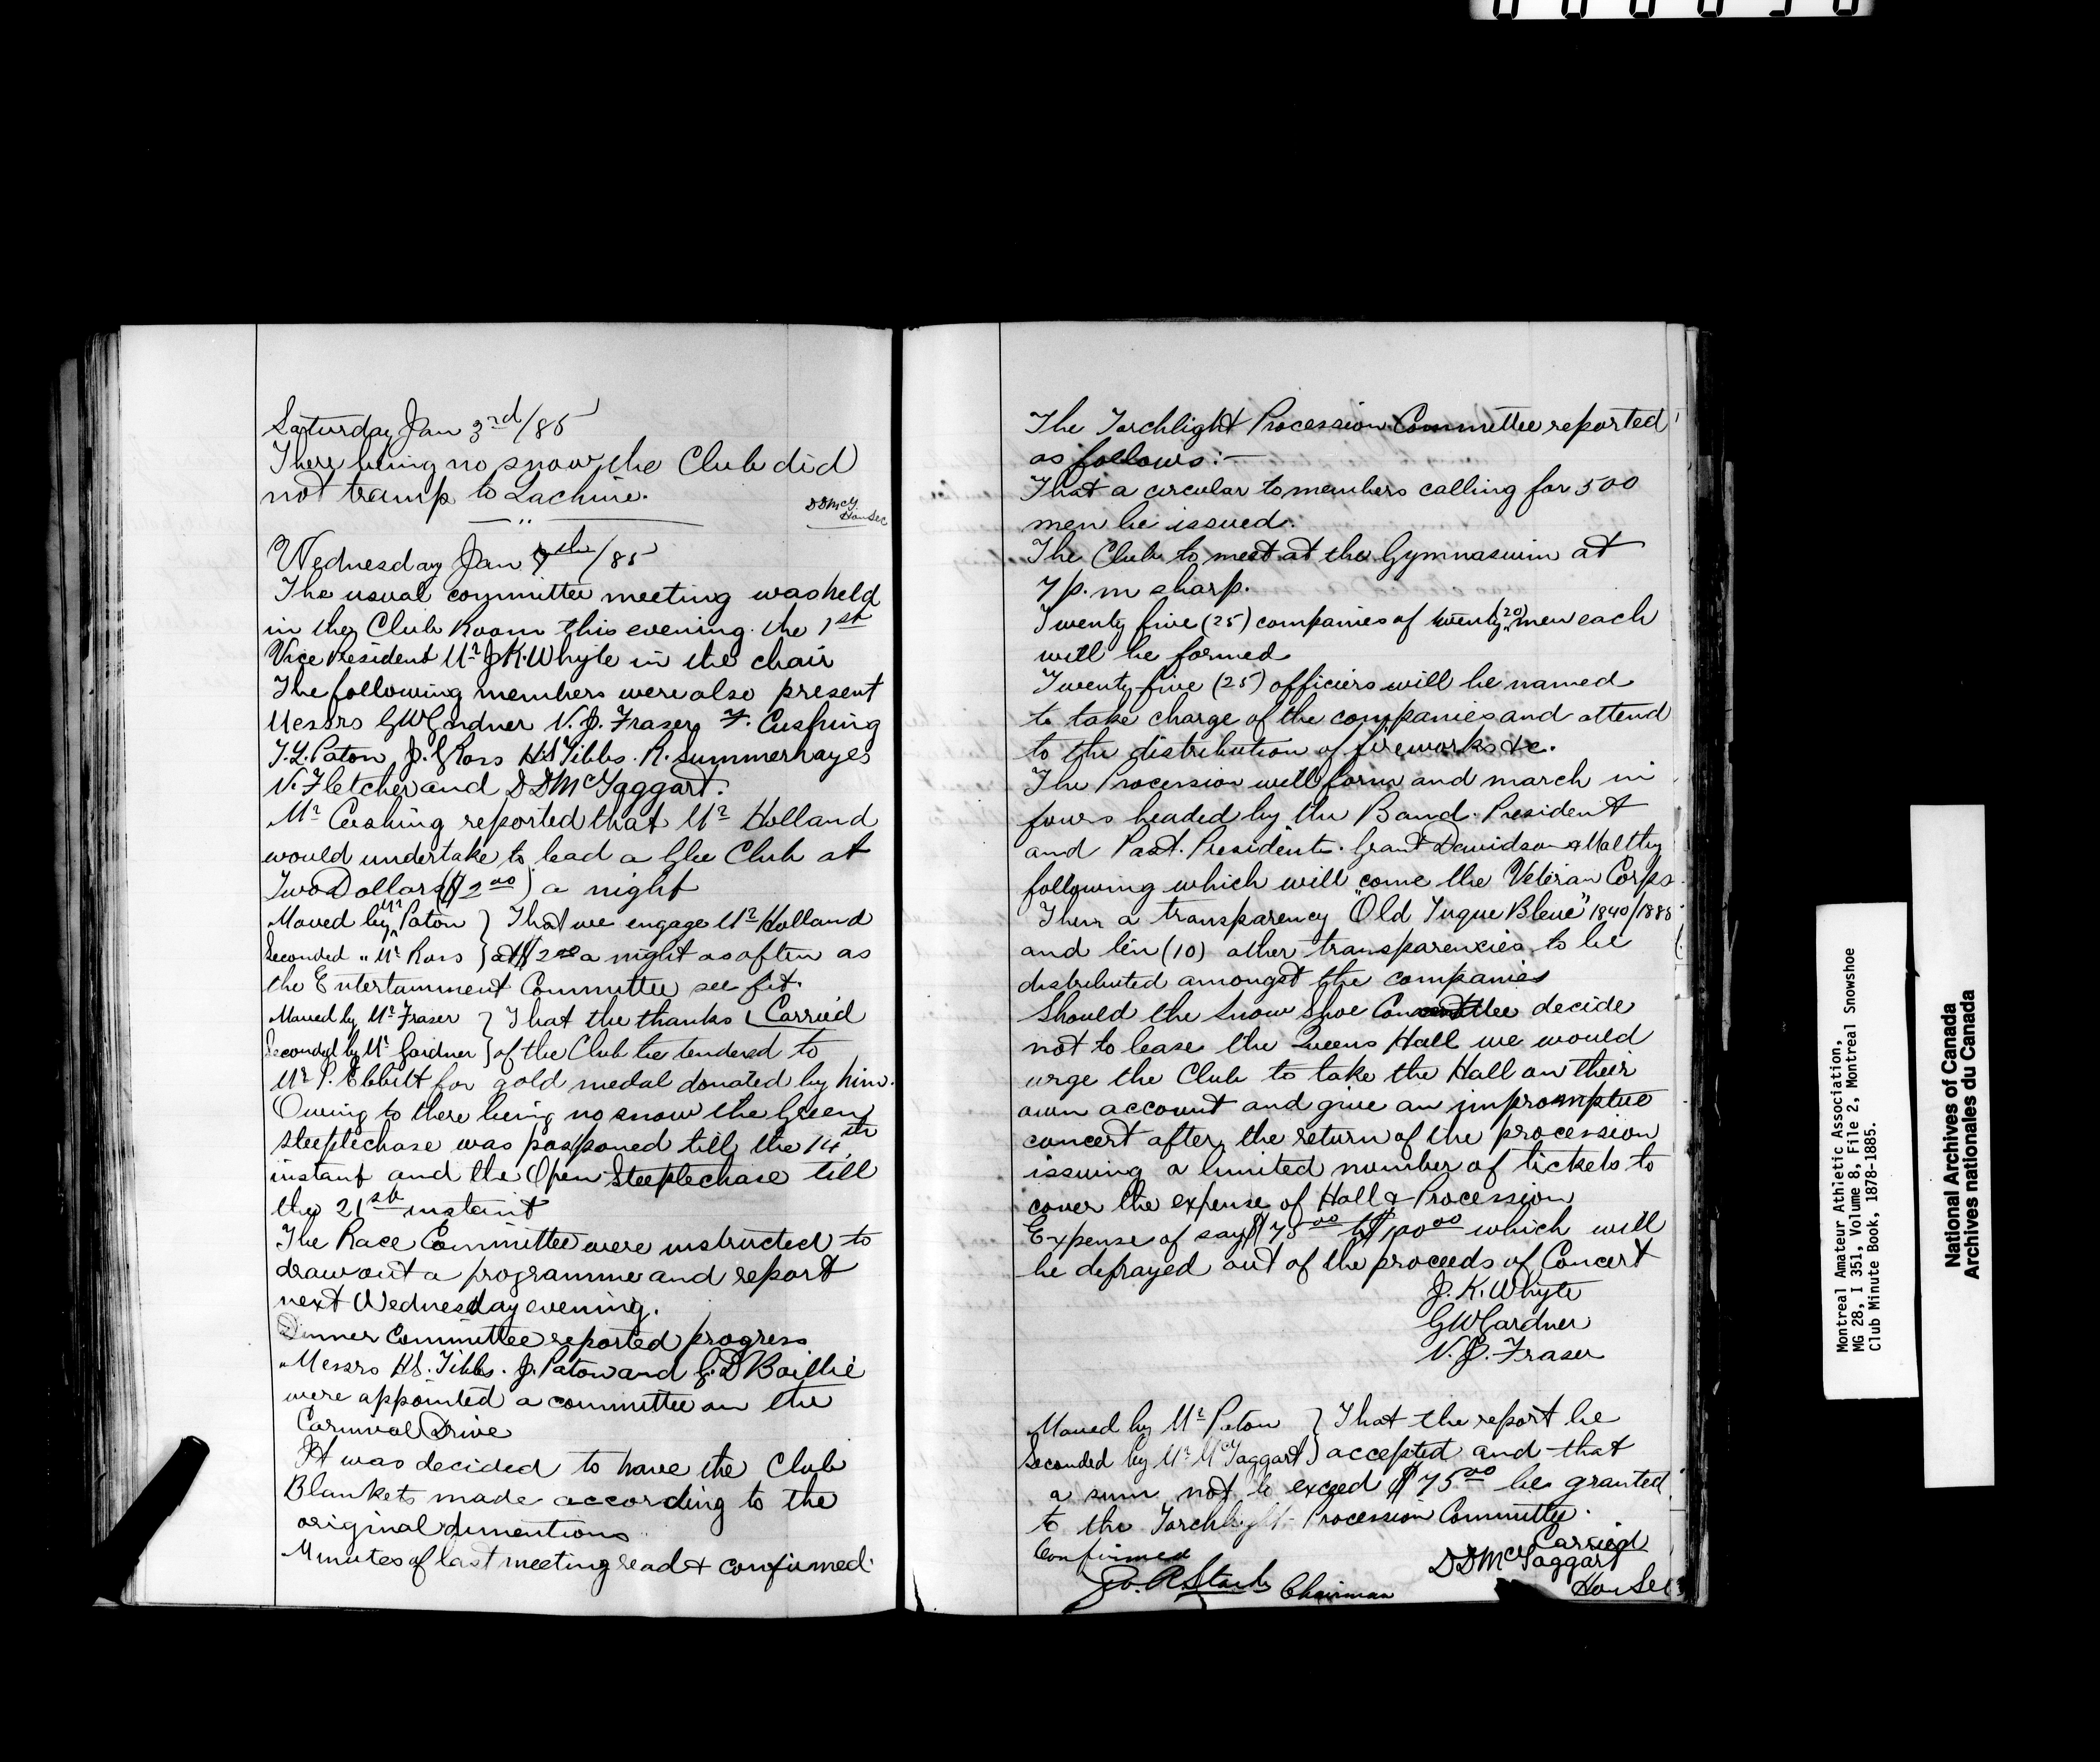 Saturday Jan 3rd/85
There being no snow the Club did
not tramp to Lachine.
DDMcT.
Hon Sec
Wednesday Jan 7th/85
The usual committee meeting was held
in the Club Room this evening. the 1st
Vice President Mr J.K. Whyte in the chair
The following members were also present
Messrs GWGardner N.J. Fraser, F. Cushing
T.L. Paton J.G Ross H.S Tibbs. R. Summerhayes
N. Fletcher and DDMcTaggart.
Mr Cushing reported that Mr Holland
would undertake to lead a Glee Club at
Two Dollars ($2.00) a night
Moved by Mr Paton } That we engage Mr Holland
Seconded " Mr Ross } at $2.00 a night as often as
the Entertainment Committee see fit.
Carried
Moved by Mr Fraser } That the thanks
Seconded by Mr Gardner } of the Club be tendered to
Mr P. Ebbitt for gold medal donated by him.
Owing to there being no snow the Green
steeplechase was postponed till the 14th
instant and the Open Steeplechase till
the 21st instant
The Race Committee were instructed to
draw out a programme and report
next Wednesday evening.
Dinner Committee reported progress
Messrs HS. Tibbs. J. Paton and G.D Baillie
were appointed a committee on the
Carnival Drive
It was decided to have the Club
Blankets made according to the
original dimentions
Minutes of last meeting read & confirmed.
The Torchlight Procession Committee reported
as follows:—
That a circular to members calling for 500
men be issued.
The Club to meet at the Gymnasium at
7 p.m sharp.
Twenty five (25) companies of twenty (20) men each
will be formed
Twenty-five (25) officiers will be named
to take charge of the companies and attend
to the distribution of fireworks &c.
The Procession will form and march in
fours headed by the Band. President
and Past. Presidents. Grant Davidson & Maltby
following which will come the Veteran Corps.
Then a transparency "Old Tuque Bleue" 1840/1885
and ten (10) other transparencies to be
distributed amongst the companies
Should the Snow Shoe Committee decide
not to lease the Queens Hall we would
urge the Club to take the Hall on their
own account and give an impromptue
concert after the return of the procession
issuing a limited number of tickets to
cover the expense of Hall & Procession
Expense of say $75.00 to $100.00 which will
be defrayed out of the proceeds of Concert
J.K. Whyte
GWGardner
N.J. Fraser
Moved by Mr Paton } That the report be
Seconded by Mr McTaggart } accepted and that
a sum not to exceed $75.00 be granted
to the Torchlight Procession Committee.
Carried
Confirmed
DDMcTaggart
Hon Sec
Chairman
Montreal Amateur Athletic Association,
MG 28, I 351, Volume 8, File 2, Montreal Snowshoe
Club Minute Book, 1878-1885.
National Archives of Canada
Archives nationales du Canada